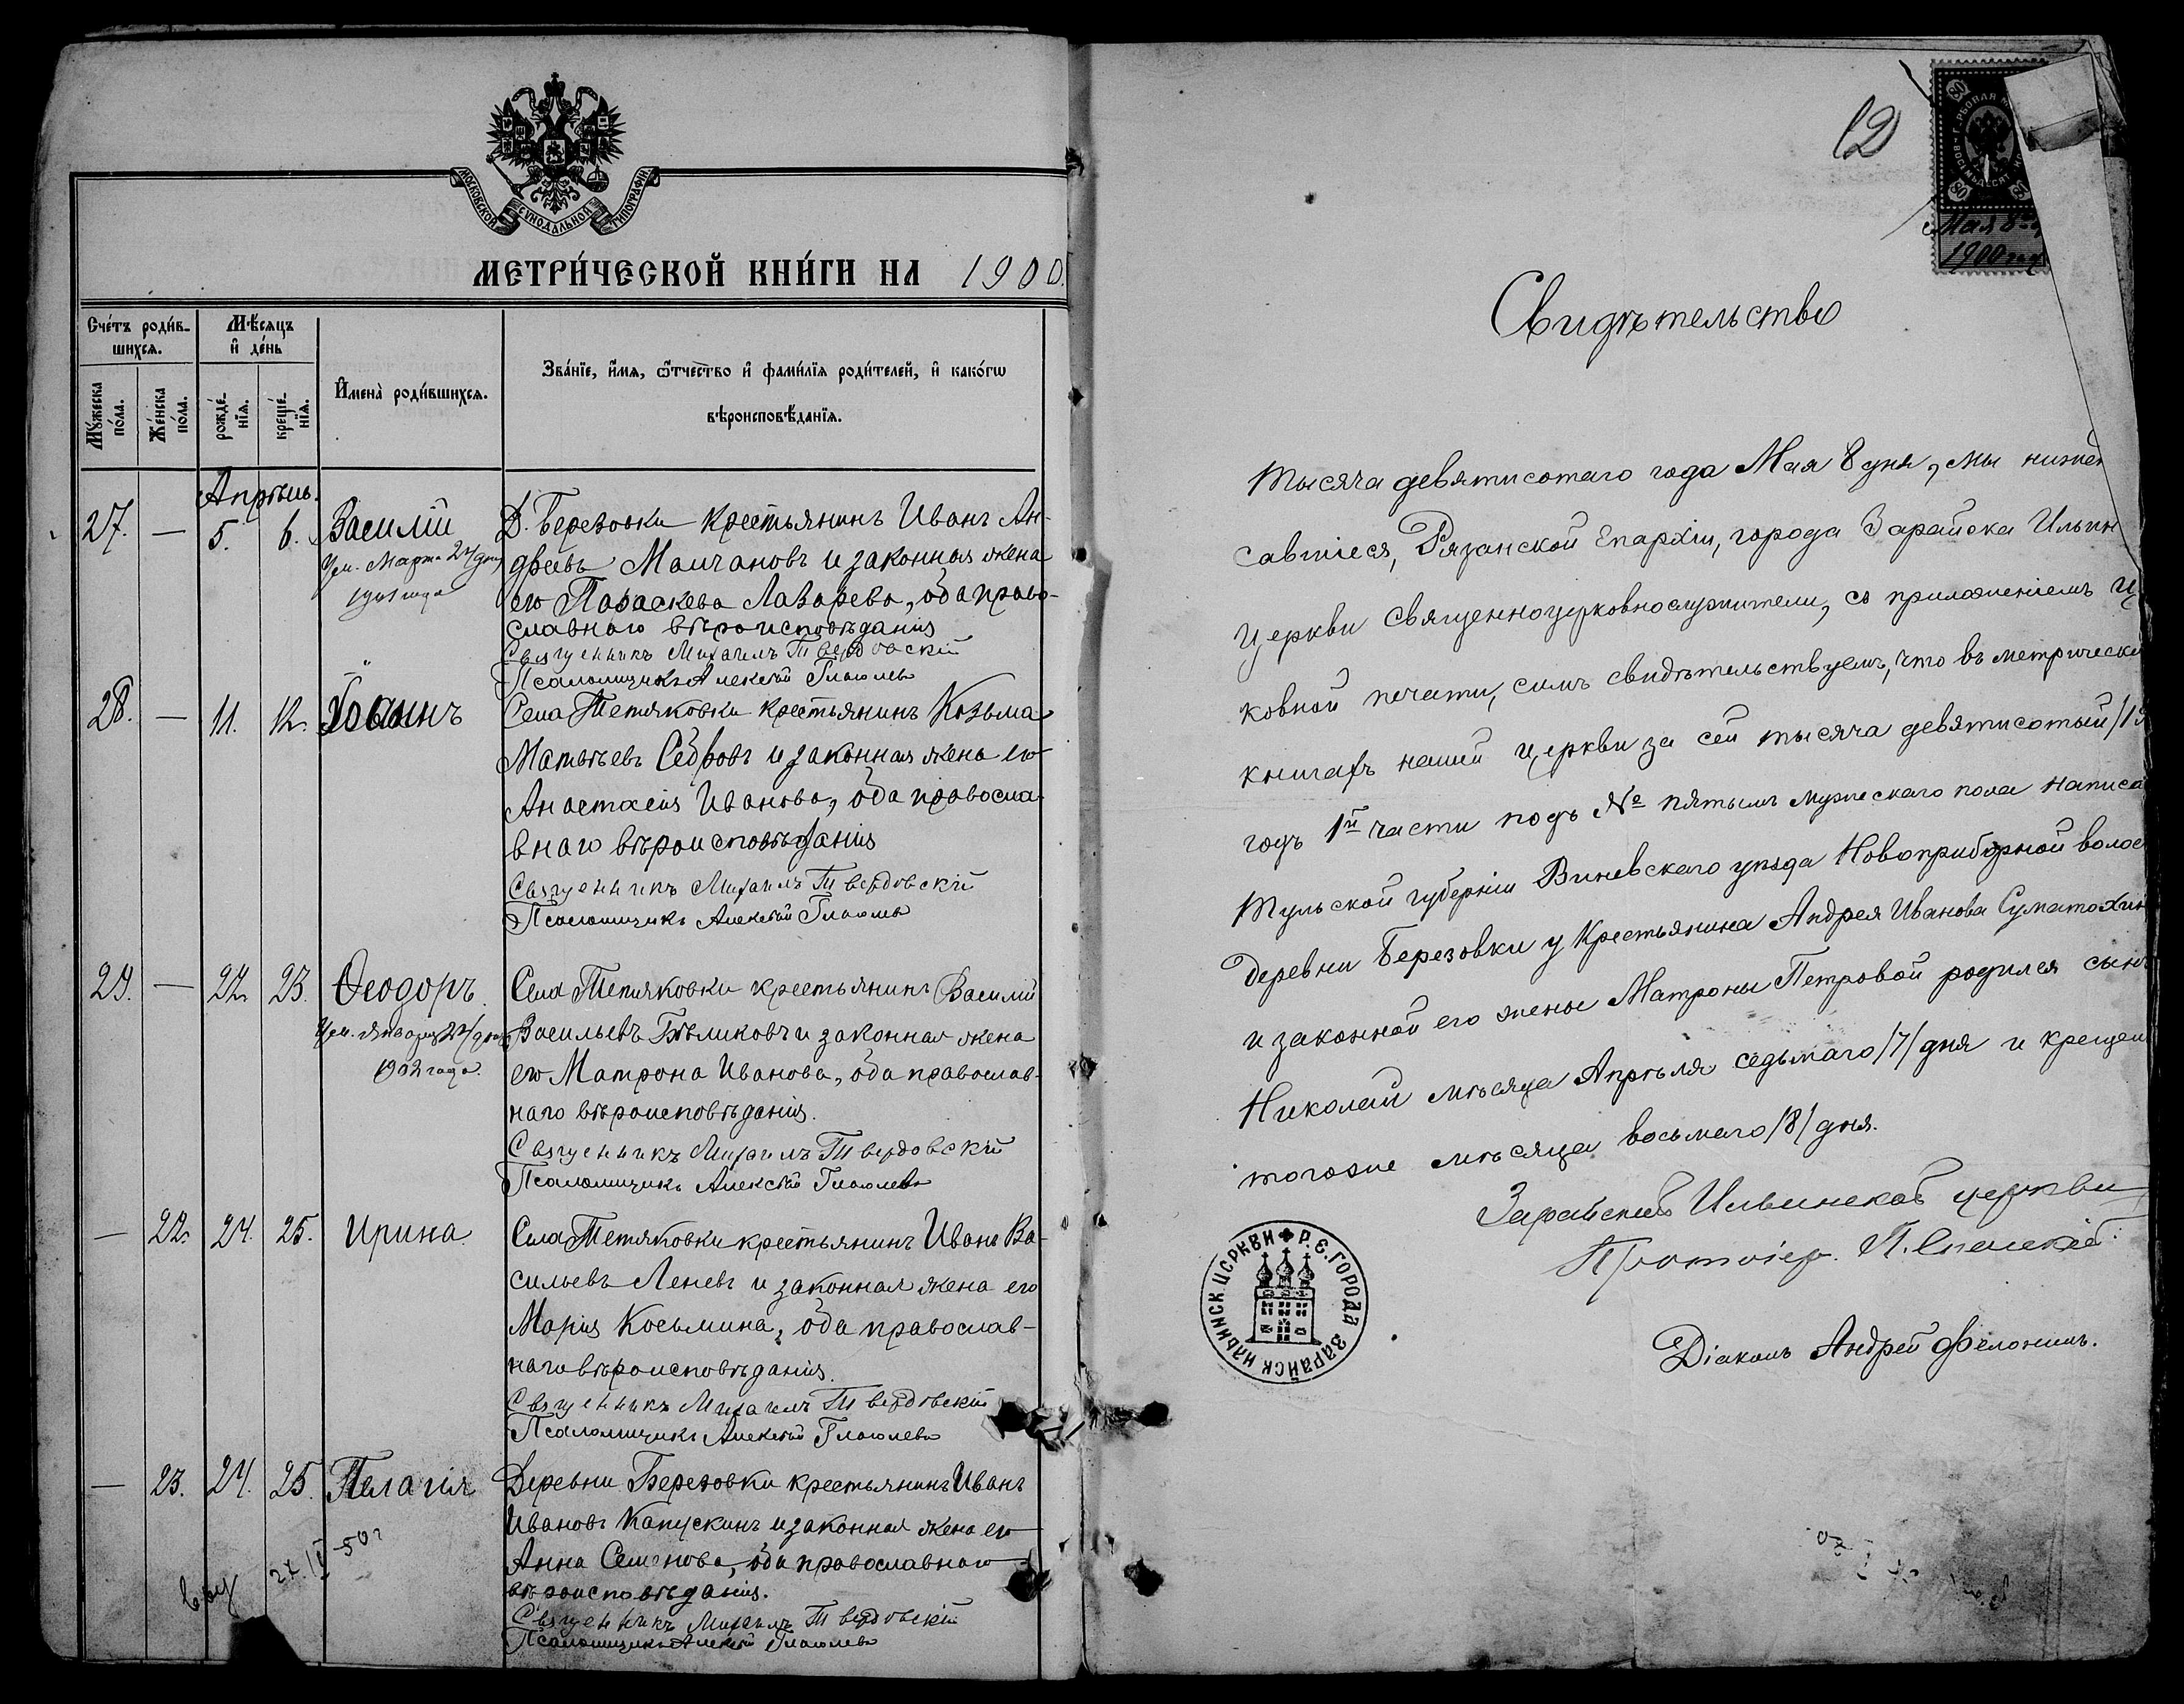 МОСКОВСКОЙ СѴНОДАЛЬНОЙ ТИПОГРАФІИ
МЕТРИ́ЧЕСКОЙ КНИ́ГИ НА 1900.
Сче́тъ роди́в-
шихся.
Мѣ́сяцъ
и҆ де́нь
Мꙋ́жеска
по́ла.
Же́нска
по́ла.
рожде́-
нїя.
креще́-
нїя.
И҆мена̀ роди́вшихся.
Зва́нїе, и҆́мя, ѻ҆́тчество и҆ фами́лїя роди́телей, и҆ како́гѡ
вѣроисповѣ́данїя.
Апрѣль.
27. — 5. 6. Василій Д. Березовки крестьянинъ Иванъ Ан-
Ум. Марта 24 дня дреевъ Малчановъ и законная жена
1901 года его Параскева Лазарева, оба право-
славнаго вѣроисповѣданія
Священникъ Михаилъ Твердовскій
Псаломщикъ Алексѣй Глаголевъ
28. — 11. 12. Іоаннъ Села Тетяковки крестьянинъ Козьма
Матвѣевъ и законная жена его
Анастасія Иванова, оба правосла-
внаго вѣроисповѣданія
Священникъ Михаилъ Твердовскій
Псаломщикъ Алексѣй Глаголевъ
29. — 22. 23. Ѳеодоръ. Села Тетяковки крестьянинъ Василій
Ум. Января 24 дня Васильевъ Бѣликовъ и законная жена
1902 года. его Матрона Иванова, оба православ-
наго вѣроисповѣданія.
Священникъ Михаилъ Твердовскій
Псаломщикъ Алексѣй Глаголевъ
— 22. 24. 25. Ирина. Села Тетяковки крестьянинъ Иванъ Ва-
сильевъ Леневъ и законная жена его
Марія Косьмина, оба православ-
наго вѣроисповѣданія.
Священникъ Михаилъ Твердовскій
Псаломщикъ Алексѣй Глаголевъ
— 23. 24. 25. Пелагія Деревни Березовки крестьянинъ Иванъ
Ивановъ Капускинъ и законная жена его
Анна Семенова, оба православнаго
вѣроисповѣданія.
Священникъ Михаилъ Твердовскій
Псаломщикъ Алексѣй Глаголевъ
12
80
Мая 8
1900 год
Свидѣтельство
Тысяча девятисотаго года Мая 8 дня, мы нижеп
савшіеся, Рязанской Епархіи, города Зарайска Ильин
церкви священноцерковнослужители, съ приложеніемъ ц
ковной печати, симъ свидѣтельствуемъ, что въ метрическ
книгахъ нашей церкви за сей тысяча девятисотый /19
годъ 1й части подъ № пятымъ мужескаго пола написа
Тульской губерніи Виневскаго уѣзда Новоприборной волос
деревни Березовки у Крестьянина Андрея Иванова Суматохин
и законной его жены Матроны Петровой родился сынъ
Николай мѣсяца Апрѣля седьмаго /7/ дня и крещен
тогоже мѣсяца восьмаго /8/ дня.
Зарайской Ильинской церкви
Протоіер. П. Спасскій.
Діаконъ Андрей Ѳелонинъ.
ИЛЬИНСК ЦЕРКВИ Р.Е. ГОРОДА ЗАРАЙСК